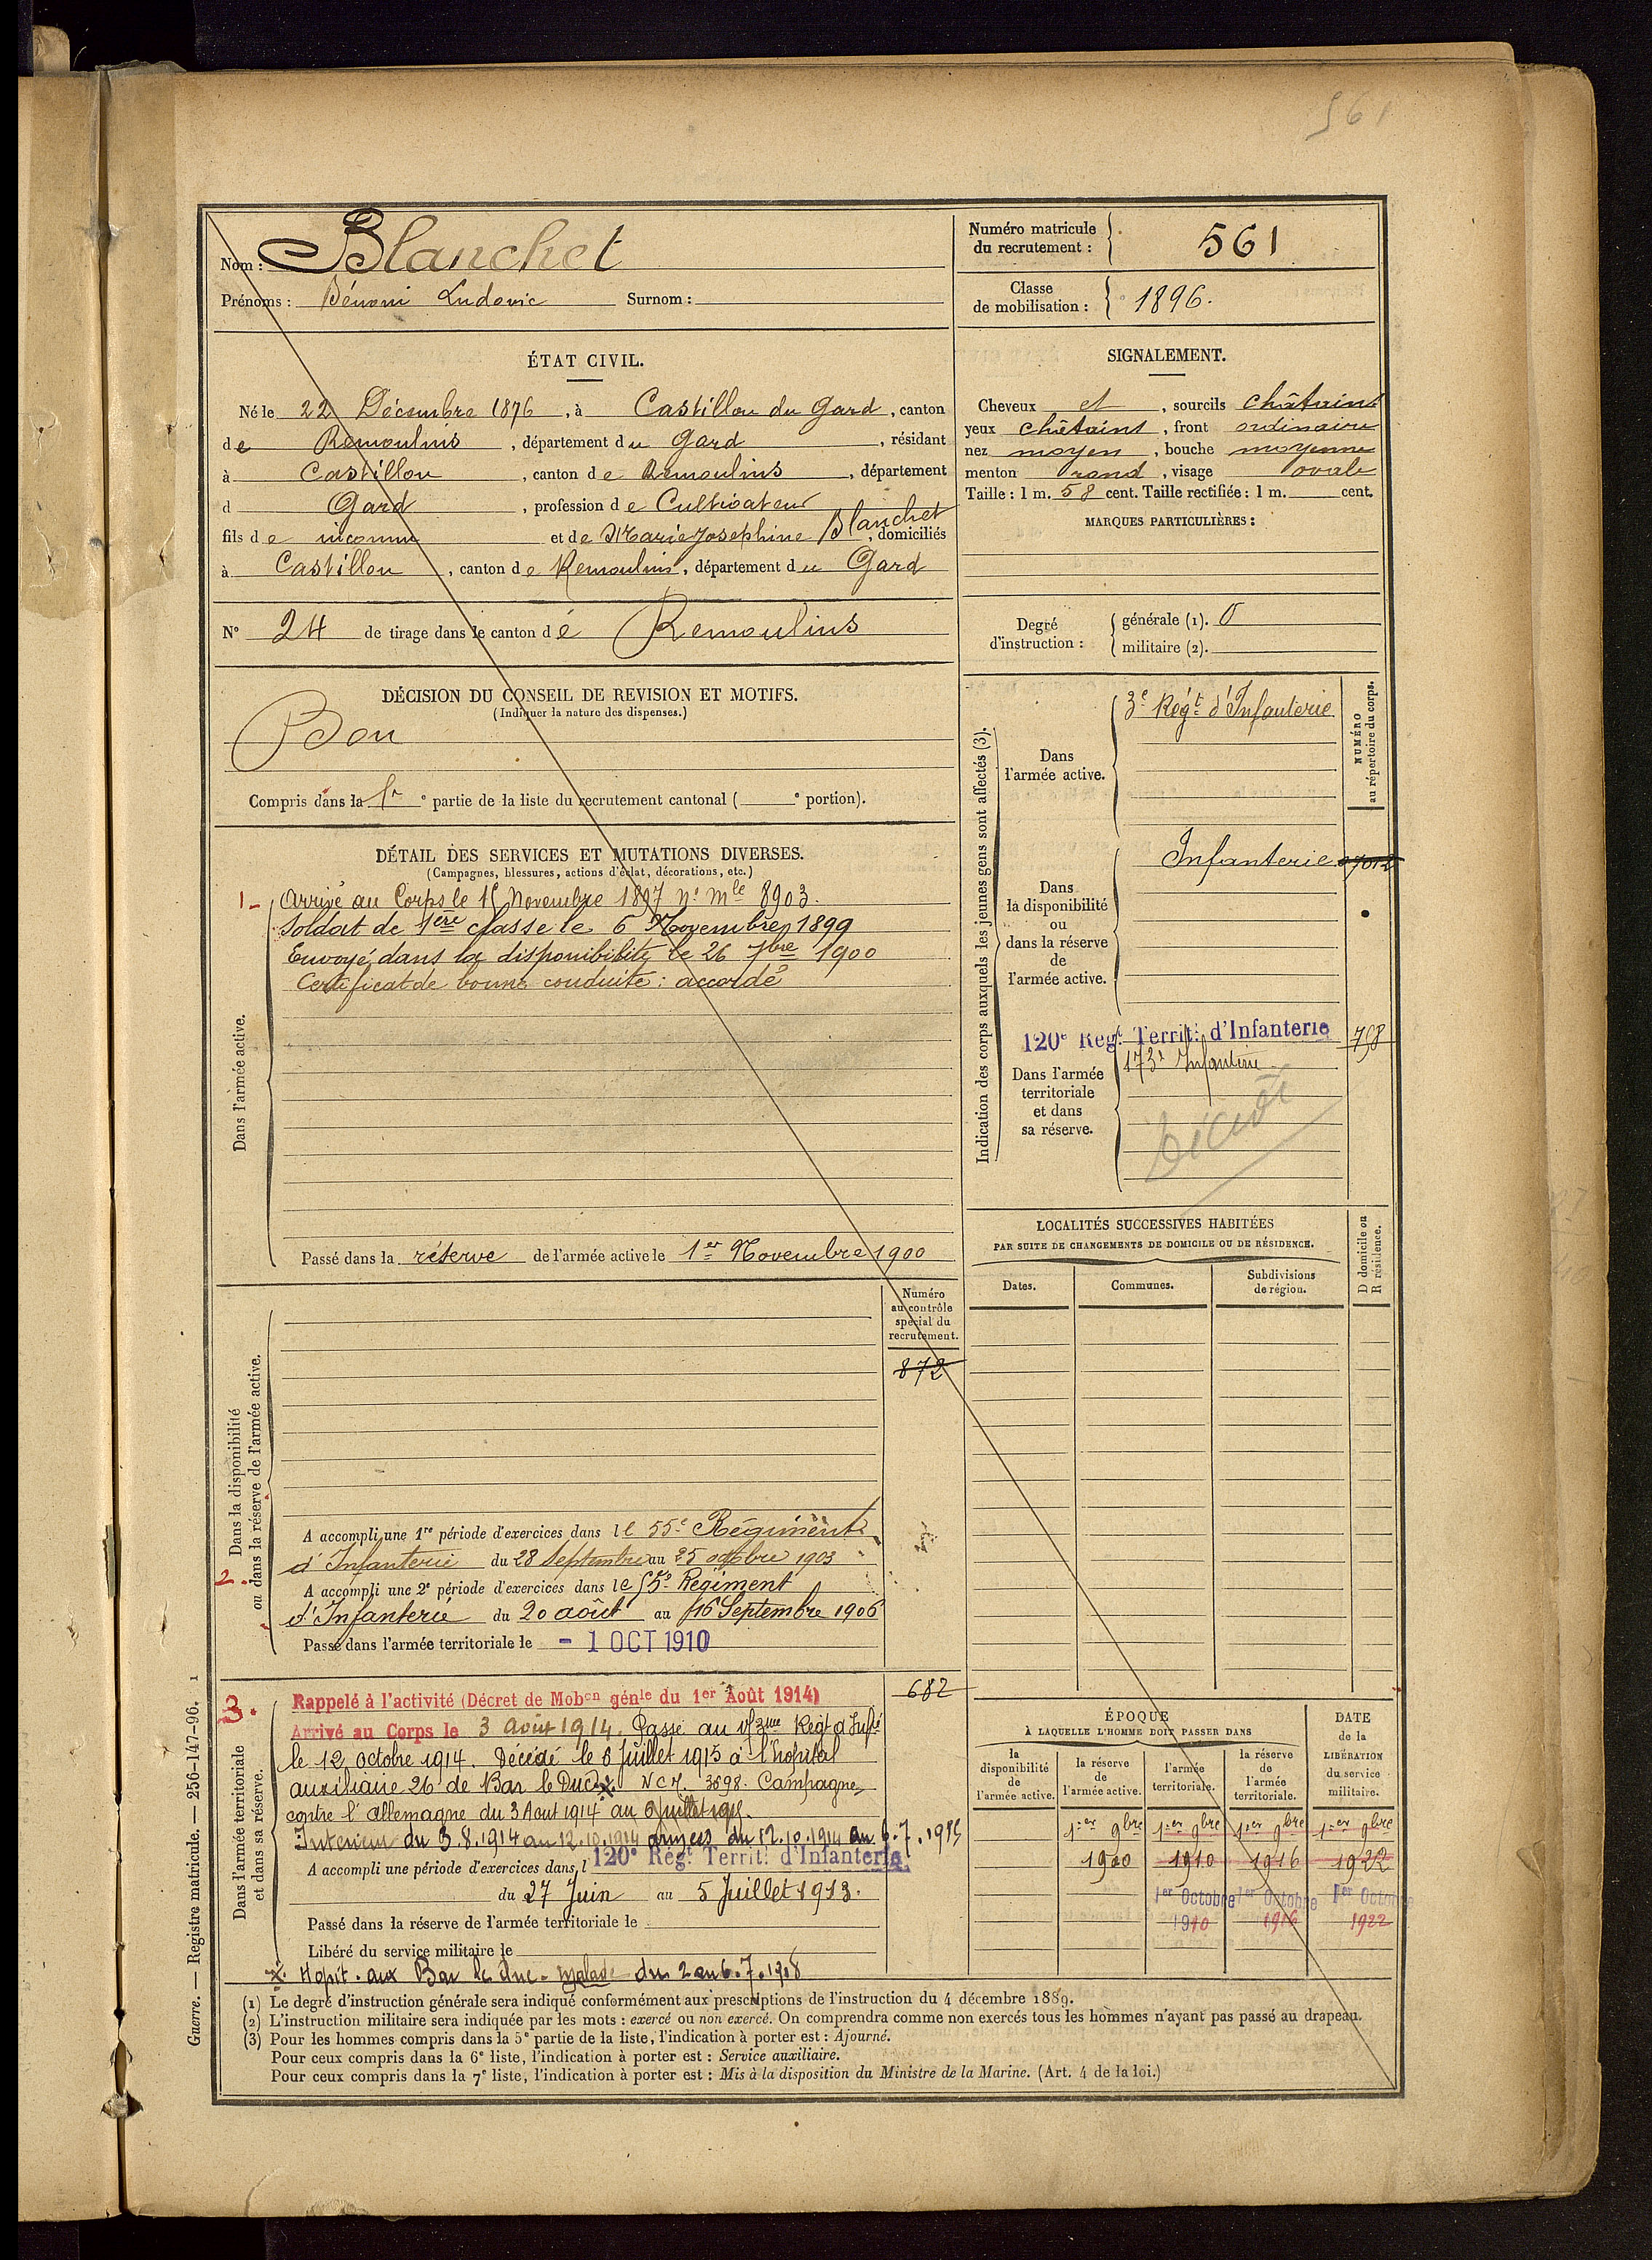 561
Nom : Blanchet
Prénoms : Bénoni Ludovic Surnom :
Numéro matricule du recrutement : 561
Classe de mobilisation : 1896.
ÉTAT CIVIL.
Né le 22 Décembre 1876, à Castillon du Gard, canton
de Remoulins, département du Gard, résidant
à Castillon, canton de Remoulins, département
d Gard, profession de Cultivateur
fils de inconnu et de Marie Josephine Blanchet, domiciliés
à Castillon, canton de Remoulins, département du Gard
N° 24 de tirage dans le canton de Remoulins
DÉCISION DU CONSEIL DE REVISION ET MOTIFS.
(Indiquer la nature des dispenses.)
Bon
Compris dans la 1re partie de la liste du recrutement cantonal ( e portion).
SIGNALEMENT.
Cheveux et, sourcils châtains
yeux châtains, front ordinaire
nez moyen, bouche moyenne
menton rond, visage ovale
Taille : 1 m. 58 cent. Taille rectifiée : 1 m. cent.
MARQUES PARTICULIÈRES :
Degré d'instruction : générale (1). 0
militaire (2).
Indication des corps auxquels les jeunes gens sont affectés (3).
NUMÉRO au répertoire du corps.
Dans l'armée active.
3e Régt d'Infanterie
Dans la disponibilité ou dans la réserve de l'armée active.
Infanterie
120e Régt Territl d'Infanterie 758
Dans l'armée territoriale et dans sa réserve.
173e Infanterie
Décédé
DÉTAIL DES SERVICES ET MUTATIONS DIVERSES.
(Campagnes, blessures, actions d'éclat, décorations, etc.)
Dans l'armée active.
1- Arrivé au Corps le 15 Novembre 1897 n° mle 8903.
Soldat de 1ère classe le 6 Novembre 1899
Envoyé dans la disponibilité le 26 7bre 1900
Certificat de bonne conduite : accordé
Passé dans la réserve de l'armée active le 1er Novembre 1900
LOCALITÉS SUCCESSIVES HABITÉES
PAR SUITE DE CHANGEMENTS DE DOMICILE OU DE RÉSIDENCE.
Dates. Communes. Subdivisions de région. D domicile ou R résidence.
Dans la disponibilité ou dans la réserve de l'armée active.
Numéro au contrôle spécial du recrutement.
872
A accompli une 1re période d'exercices dans le 55e Régiment
d'Infanterie du 28 Septembre au 25 octobre 1903
2. A accompli une 2e période d'exercices dans le 55e Régiment
d'Infanterie du 20 août au 16 Septembre 1906
Passé dans l'armée territoriale le - 1 OCT 1910
Dans l'armée territoriale et dans sa réserve.
682
3. Rappelé à l'activité (Décret de Mobon génle du 1er Août 1914)
Arrivé au Corps le 3 Août 1914. Passé au 173me Régt d'Infie
le 12 octobre 1914. Décédé le 6 Juillet 1915 à l'hopital
auxiliaire 26 de Bar le Duc. x. N C M. 3698. Campagne
contre l'allemagne du 3 Aout 1914 au 6 Juillet 1915.
Interieur du 3.8.1914 au 12.10.1914 armées du 12.10.1914 au 6.7.1915
A accompli une période d'exercices dans l 120e Régt Territl d'Infanterie
du 27 Juin au 5 Juillet 1913.
Passé dans la réserve de l'armée territoriale le
Libéré du service militaire le
x. Hopit. aux Bar le duc - malade du 2 au 6.7.1908
ÉPOQUE
À LAQUELLE L'HOMME DOIT PASSER DANS
la disponibilité de l'armée active.
la réserve de l'armée active.
l'armée territoriale.
la réserve de l'armée territoriale.
DATE de la LIBÉRATION du service militaire.
1er 9bre 1er 9bre 1er 9bre 1er 9bre
1900 1910 1916 1922
1er Octobre 1er Octobre 1er Octobre
1910 1916 1922
(1) Le degré d'instruction générale sera indiqué conformément aux prescriptions de l'instruction du 4 décembre 1889.
(2) L'instruction militaire sera indiquée par les mots : exercé ou non exercé. On comprendra comme non exercés tous les hommes n'ayant pas passé au drapeau.
(3) Pour les hommes compris dans la 5e partie de la liste, l'indication à porter est : Ajourné.
Pour ceux compris dans la 6e liste, l'indication à porter est : Service auxiliaire.
Pour ceux compris dans la 7e liste, l'indication à porter est : Mis à la disposition du Ministre de la Marine. (Art. 4 de la loi.)
Guerre. — Registre matricule. — 256-147-96. 1